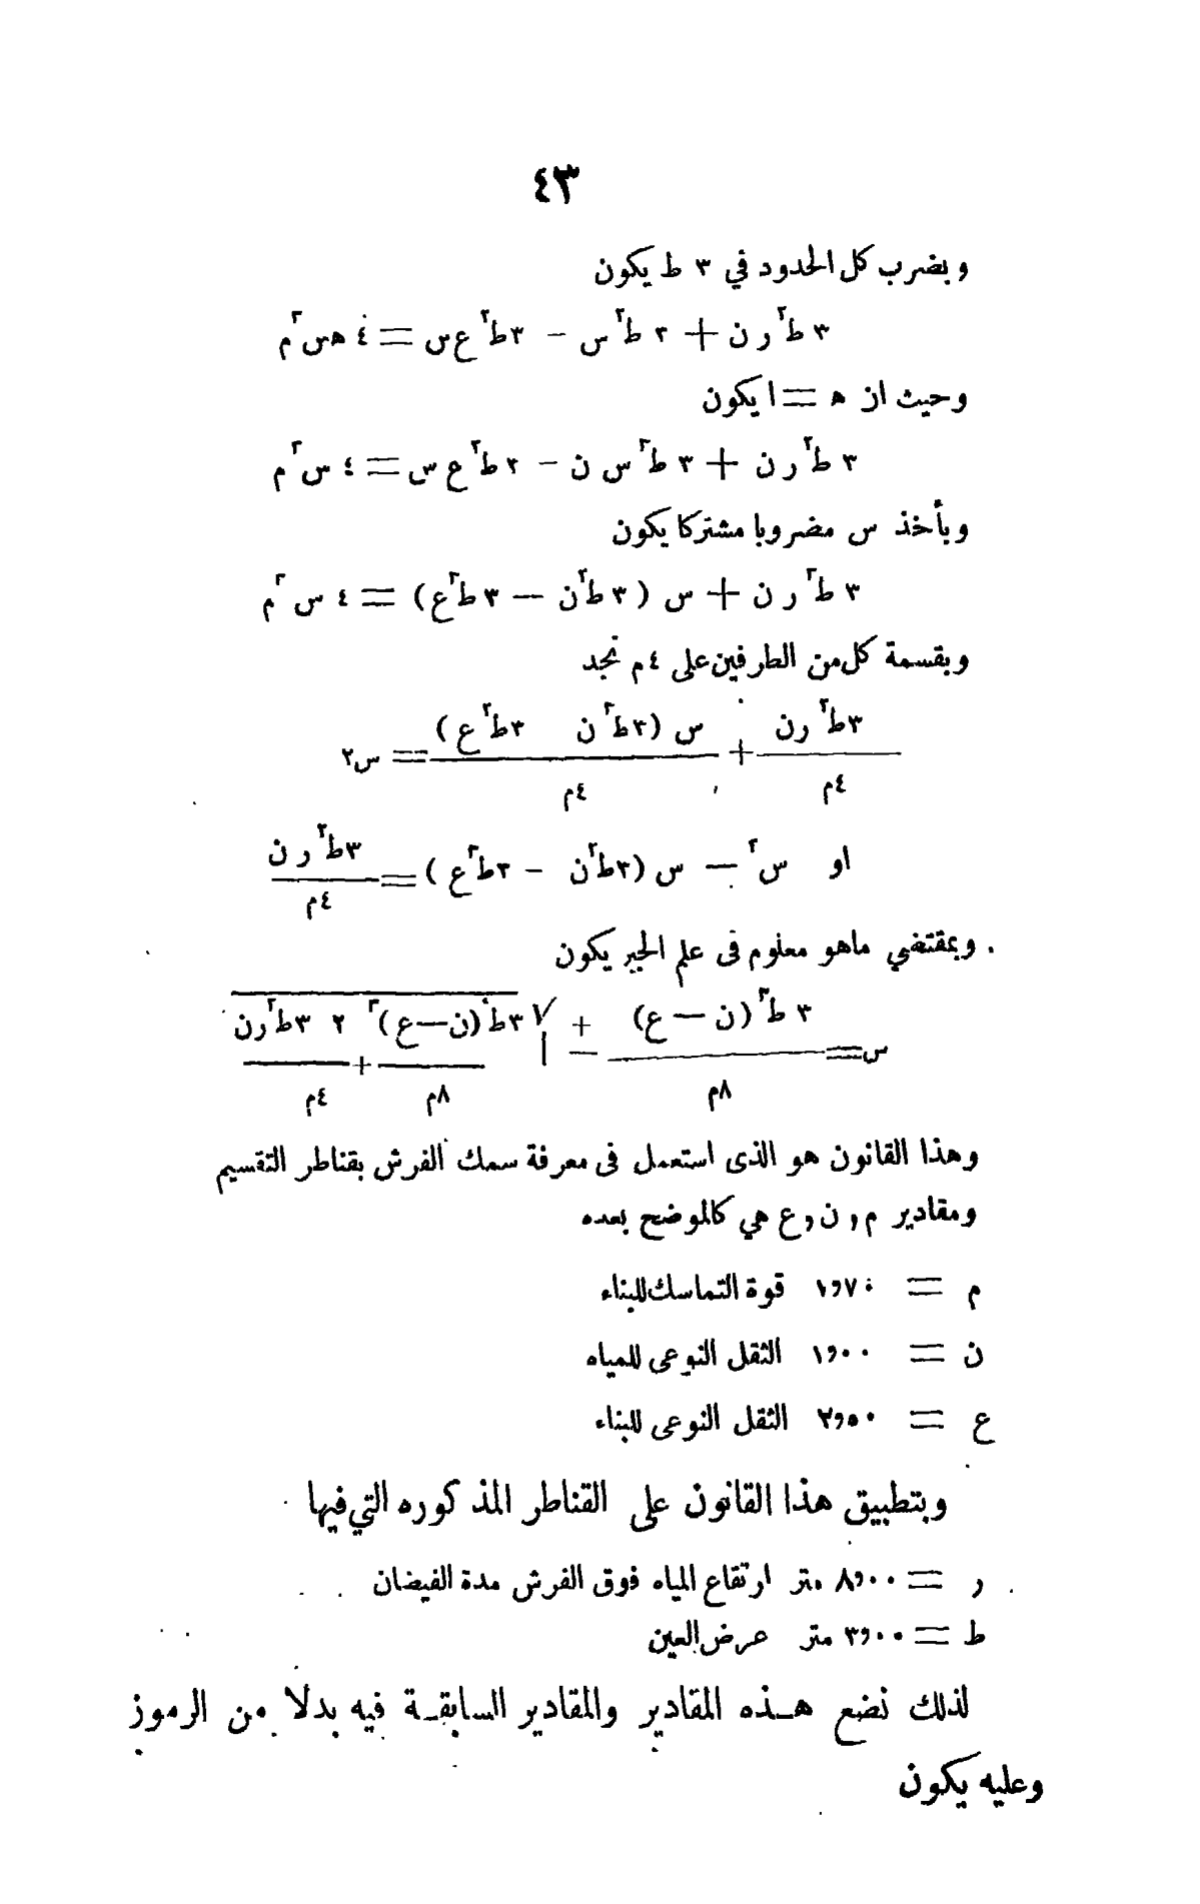 ٤٣
وبضرب كل الحدود في ٣ ط يكون
٣ ط٢ ر ن + ٣ ط٢ س − ٣ ط٢ ع س = ٤ ه س٢ م
وحيث ان ه = ١ يكون
٣ ط٢ ر ن + ٣ ط٢ س ن − ٣ ط٢ ع س = ٤ س٢ م
وبأخذ س مضروبا مشتركا يكون
٣ ط٢ ر ن + س ( ٣ ط٢ ن — ٣ ط٢ ع ) = ٤ س٢ م
وبقسمة كل من الطرفين على ٤م نجد
٣ط٢ رن + س (٣ط٢ ن ٣ط٢ ع ) = س٢
٤م ٤م
او س٢ — س (٣ط٢ ن − ٣ط٢ ع ) = ٣ط٢ ر ن
٤م
وبمقتضي ماهو معلوم فى علم الجبر يكون
س = ٣ ط٢ (ن — ع) ± √ ٣ط٢ (ن—ع)٢ ٢ ٣ط٢ رن
٨م ٨م + ٤م
وهذا القانون هو الذى استعمل فى معرفة سمك الفرش بقناطر التقسيم
ومقادير م , ن , ع هي كالموضح بعده
م = ١,٧٠ قوة التماسك للبناء
ن = ١,٠٠ الثقل النوعى للمياه
ع = ٢,٥٠ الثقل النوعى للبناء
وبتطبيق هذا القانون على القناطر المذكوره التي فيها
ر = ٨,٠٠ متر ارتفاع المياه فوق الفرش مدة الفيضان
ط = ٣,٠٠ متر عرض العين
لذلك نضع هـذه المقادير والمقادير السابقـة فيه بدلا من الرموز
وعليه يكون